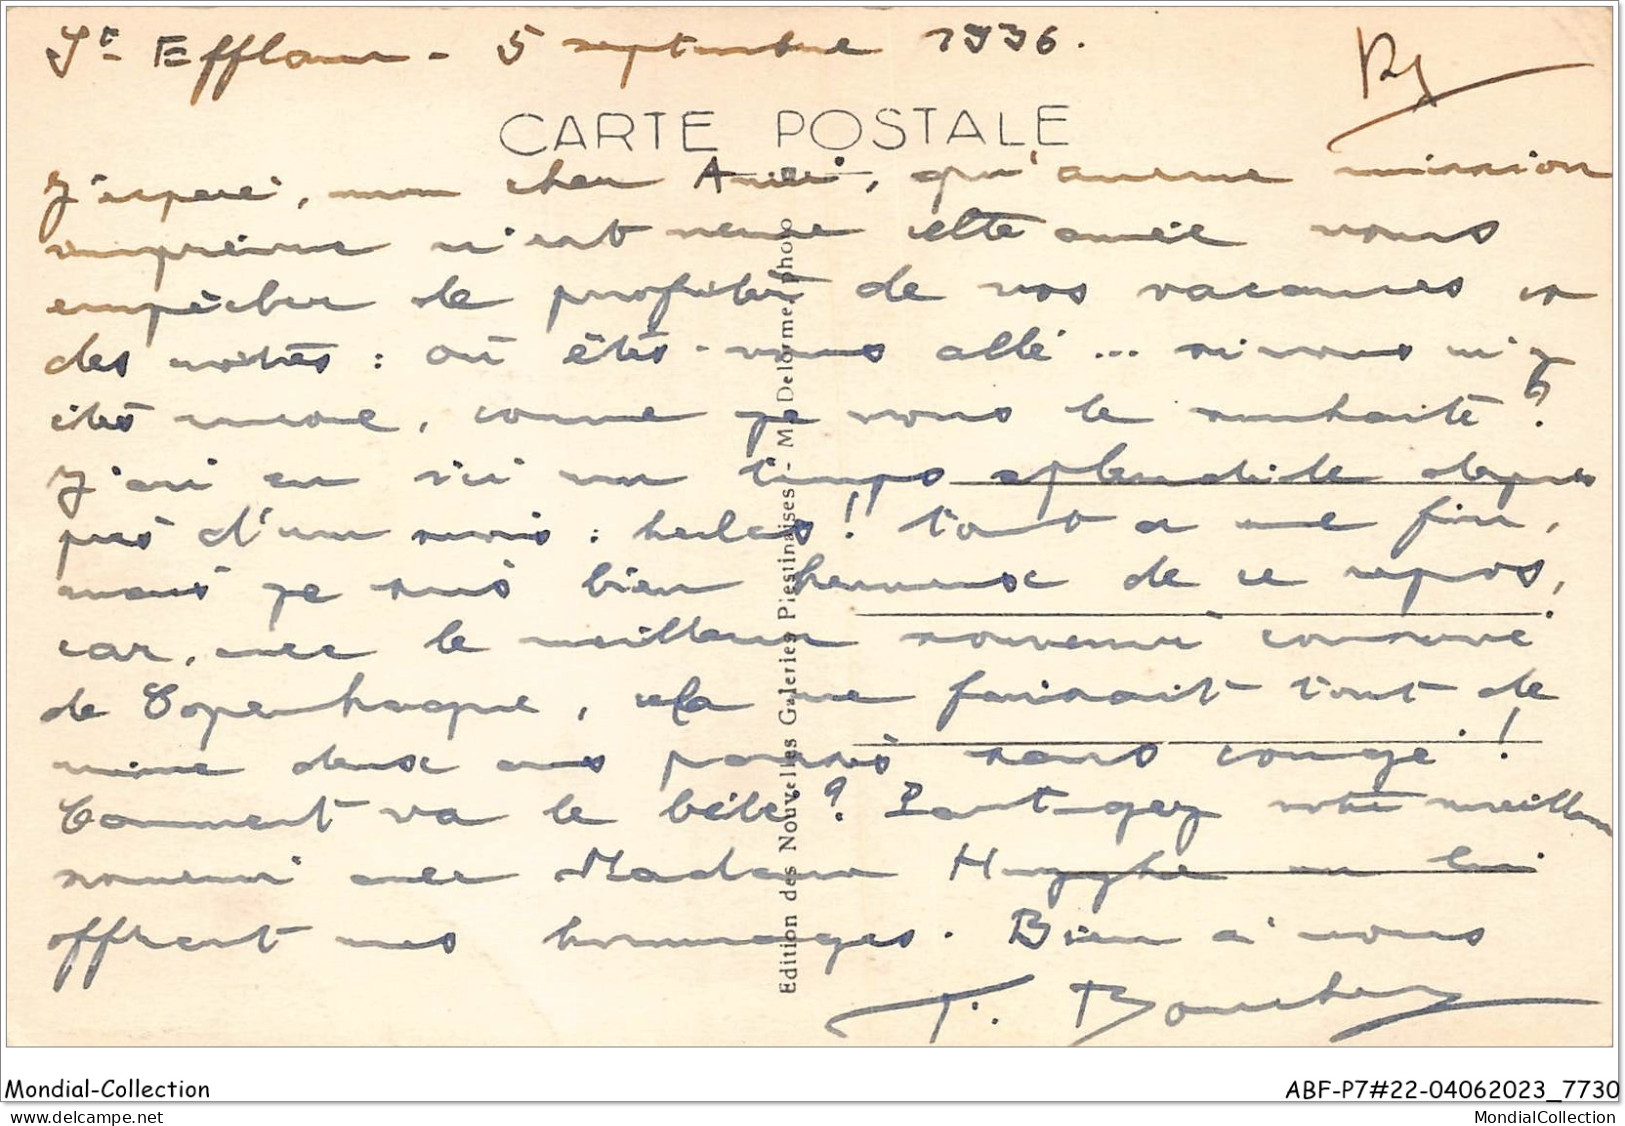 St Efflam - 5 septembre 1936.
CARTE POSTALE
J'espère, mon cher Ami, qu'aucune mission
imprévue n'est venue cette année vous
empêcher de profiter de vos vacances et
des nôtres : où êtes-vous allé ... si vous n'y
êtes encore, comme je vous le souhaite ?
J'ai eu ici un temps splendide depuis
près d'un mois : hélas ! tout a une fin,
mais je suis bien heureux de ce repos,
car, avec le meilleur souvenir conservé
de Copenhague, cela me faisait tout de
même deux ans passés sans congé !
Comment va le bébé ? Partagez notre meilleur
souvenir avec Madame Huyghe en lui
offrant mes hommages. Bien à vous
Edition des Nouvelles Galeries Plestinaises - M. Delorme, photo
Mondial-Collection
ABF-P7#22-04062023_7730
MondialCollection